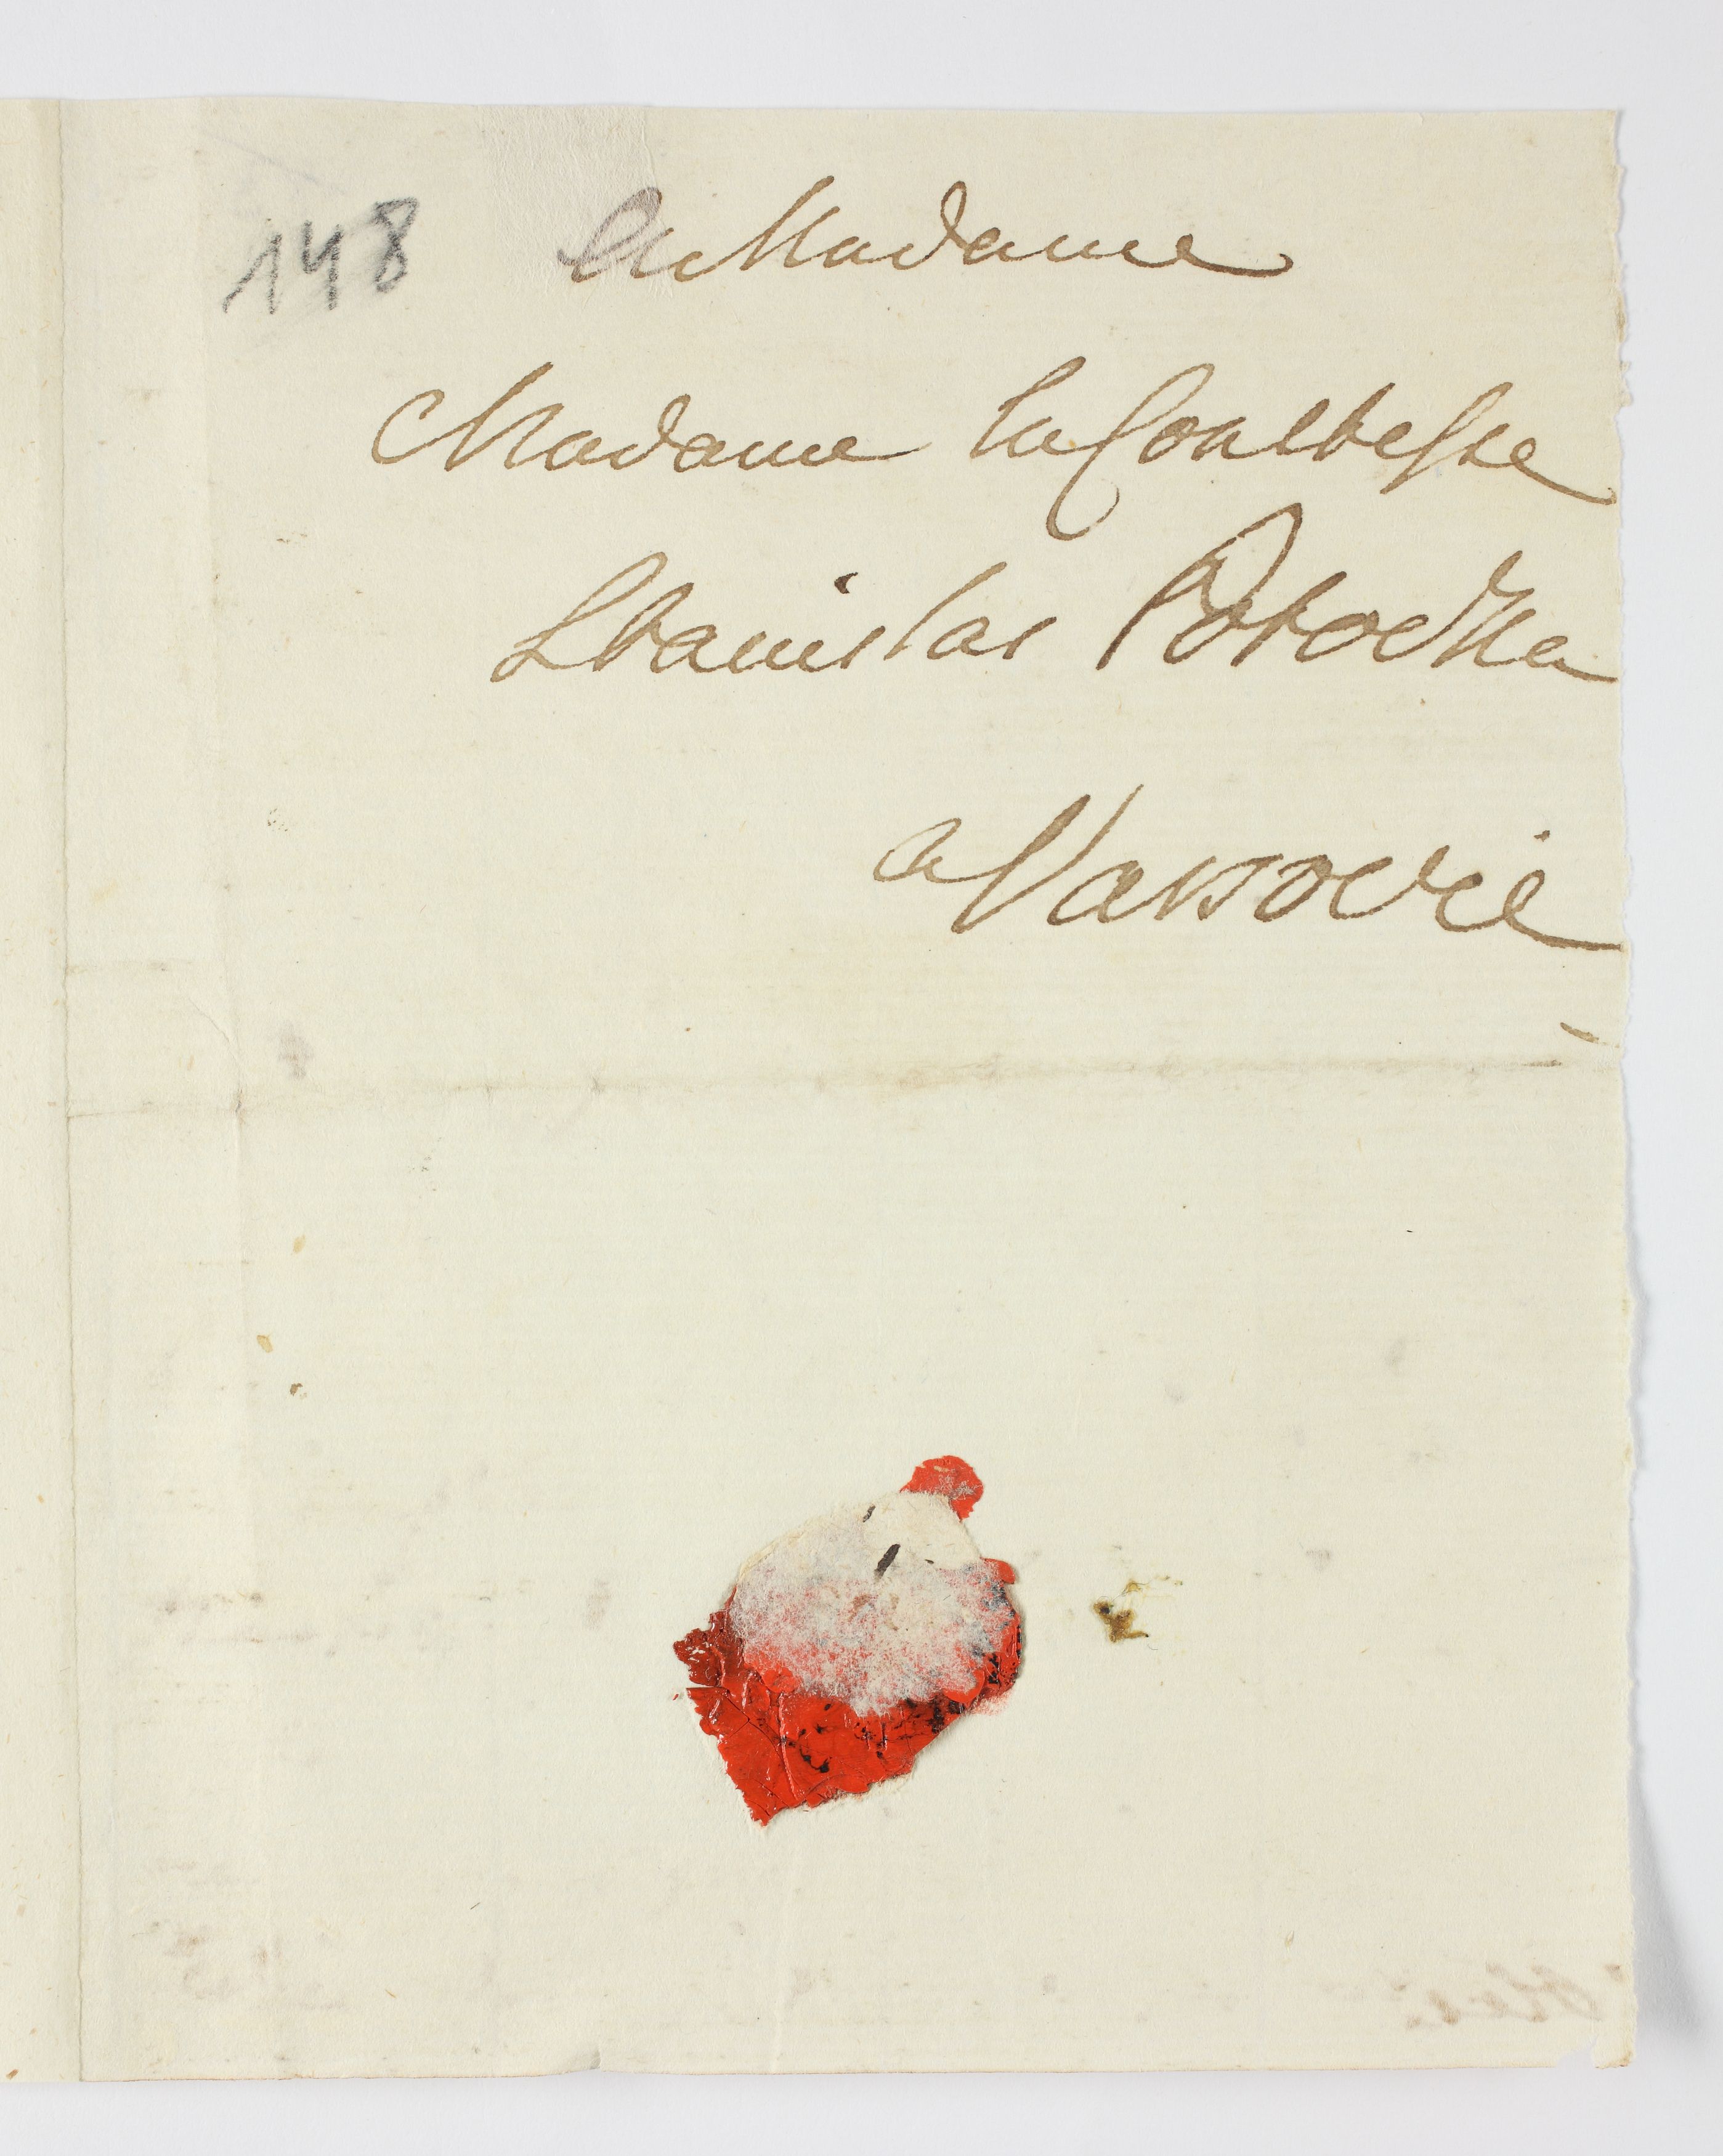 148
a Madame
Madame la Comtesse
Stanislas Potocka
a Varsovie